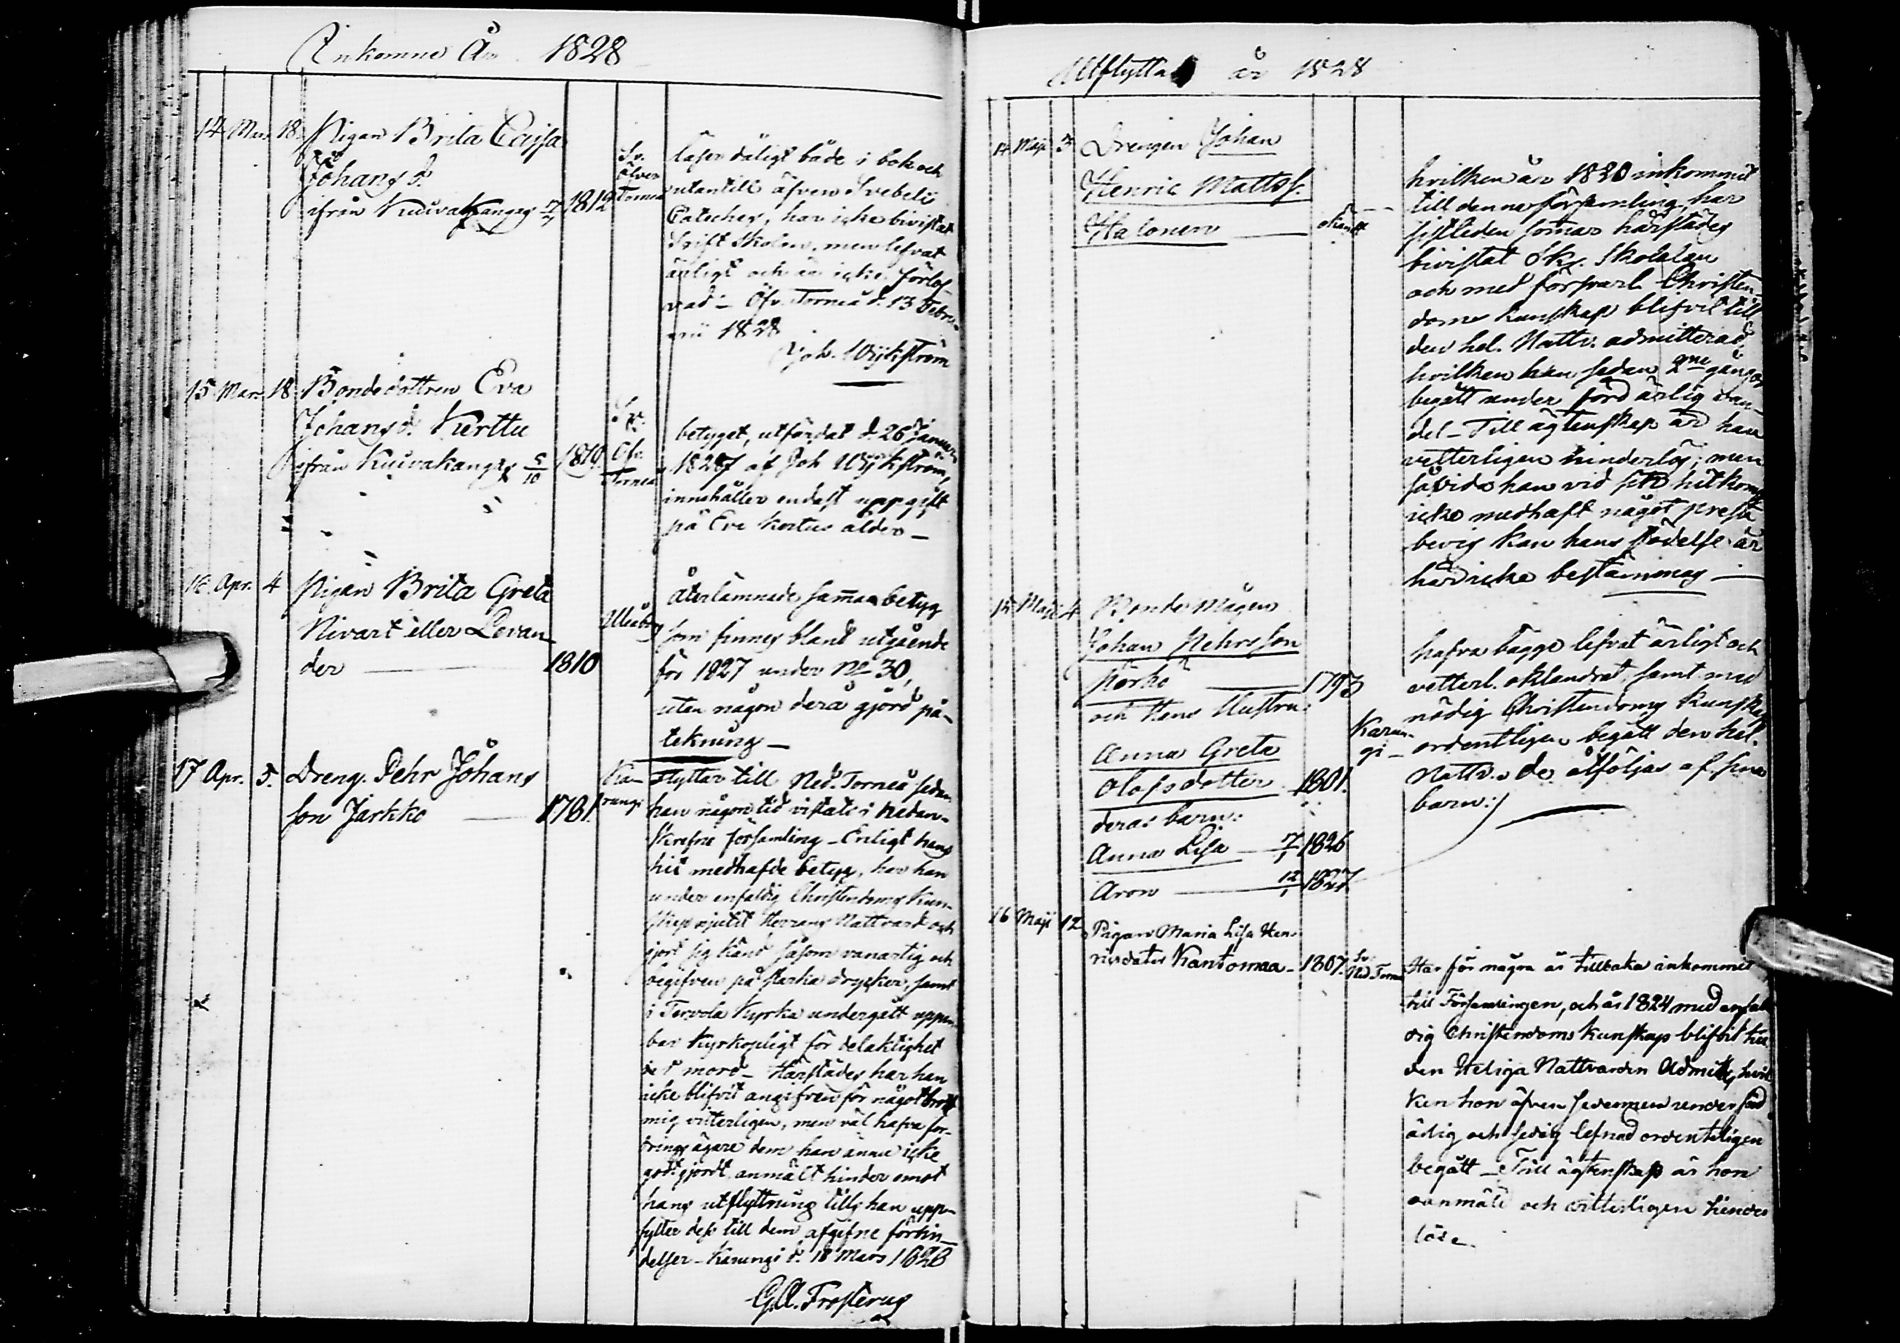 Ankomne År 1828
14 Mars 18. Pigan Brita Cajsa
Johans d.
ifrån Kuivakangas 7/7 1812
Sv.
öfver
Torneå
läser dåligt både i bok och
utantill äfven Svebeli
Cateches, har icke bivistat
Skrift Skolan, men lefvat
ärligt och är icke förlof-
vad - Öfv. Torneå d. 13 Febru-
arii 1828
Joh. Wijkström
15 Mars 18 Bondedottren Eva
Johans d. Kerttu
ifrån Kuivakangas 5/10 1819
Sv.
Öfv.
Torneå
betyget, utfärdat d. 26 Januar.
1828 af Joh Wijkström,
innehåller endast uppgift
på Eva Kertus ålder -
16 Apr. 4 Pigan Brita Greta
Nivart eller Levan-
der 1810
Uleåborg
Återlämnade samma betyg
som finnes bland utgående
för 1827 under No 30,
utan någon derå gjord på-
tekning -
17 Apr. 5. Dreng. Pehr Johans
son Jarkko 1781.
Ka-
rungi
flyttar till Ned. Torneå sedan
han någon tid vistats i nedan-
skrefne församling - Enligt hans
hit medhafde betyg, har han
under enfaldig Christendoms kun-
skap njutit Herrans Nattvard och
gjort sig känd såsom vanartig och
begifven på starka drycker, samt
i Tervola Kyrka undergått uppen-
bar Kyrkopligt för delaktighet
det mord - Härstädes har han
icke blifvit angifven för något brott
mig vitterligen, men väl hafva for-
drings ägare dem han ännu icke
godtgjordt, anmält hinder emot
hans utflyttning tills han upp-
fyller dess till dem afgifne förbin-
delser - Karungi d. 18 Mars 1828
G. A. Frosterus
Utflytta år 1828
14 Maji 3 Drengen Johan
Henric Mattss.
Halonen
hvilken år 1820 inkommit
till denna församling, har
sistleden somar härstädes
bivistat Sk. Skolalan
och med försvarl. Christen-
doms kunskap blifvit till
den hel. Nattv. admitterad,
hvilken han sedan 2ne gånger
begått under förd ärlig van-
del - Till ägtenskap är han
vetterligen hinderlös; men
såvida han vid sin hitkomst
icke medhaft något prest-
bevis kan hans födelse år
här icke bestämmas -
15 Maji 4 Bonde Mågen
Johan Pehrsson
Pörhö 1793
och Hans Hustru
Anna Greta
Olofsdotter 1801.
deras barn:
Anna Lisa 7/1 1826
Aron 12/1 1827
Karun-
gi -
hafva bägge lefvat ärligt och
vetterl. oklandrat, samt med
nödig Christendoms kunskap
ordentligen begått den hel.
Nattv. de åtföljas af sina
barn:/
16 Maji 12 Pigan Maria Lisa Hen-
ricsdatter Kantomaa - 1807.
Sv.
Ned Torneå
Har för några år tillbaka inkommit
till Församlingen, och år 1824 med enfal-
dig Christendoms Kunskap blifvit till
den Heliga Nattvarden Admitt., hvil-
ken hon äfven sedermera under förd
ärlig och sedig lefnad ordenteligen
begått - Till ägtenskap är hon
oanmält och vitterligen hinder-
lös.